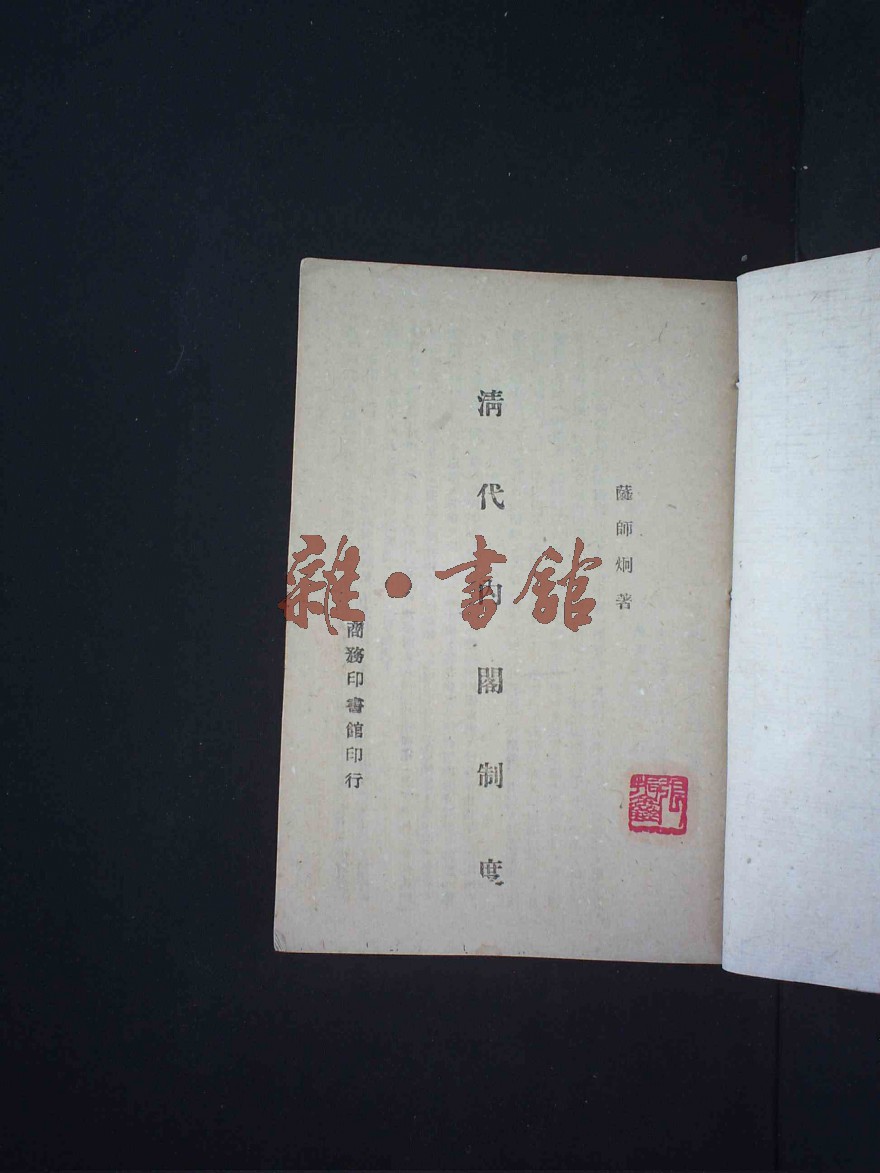 薩師炯著
清代內閣制度
商務印書館印行
雜·書館